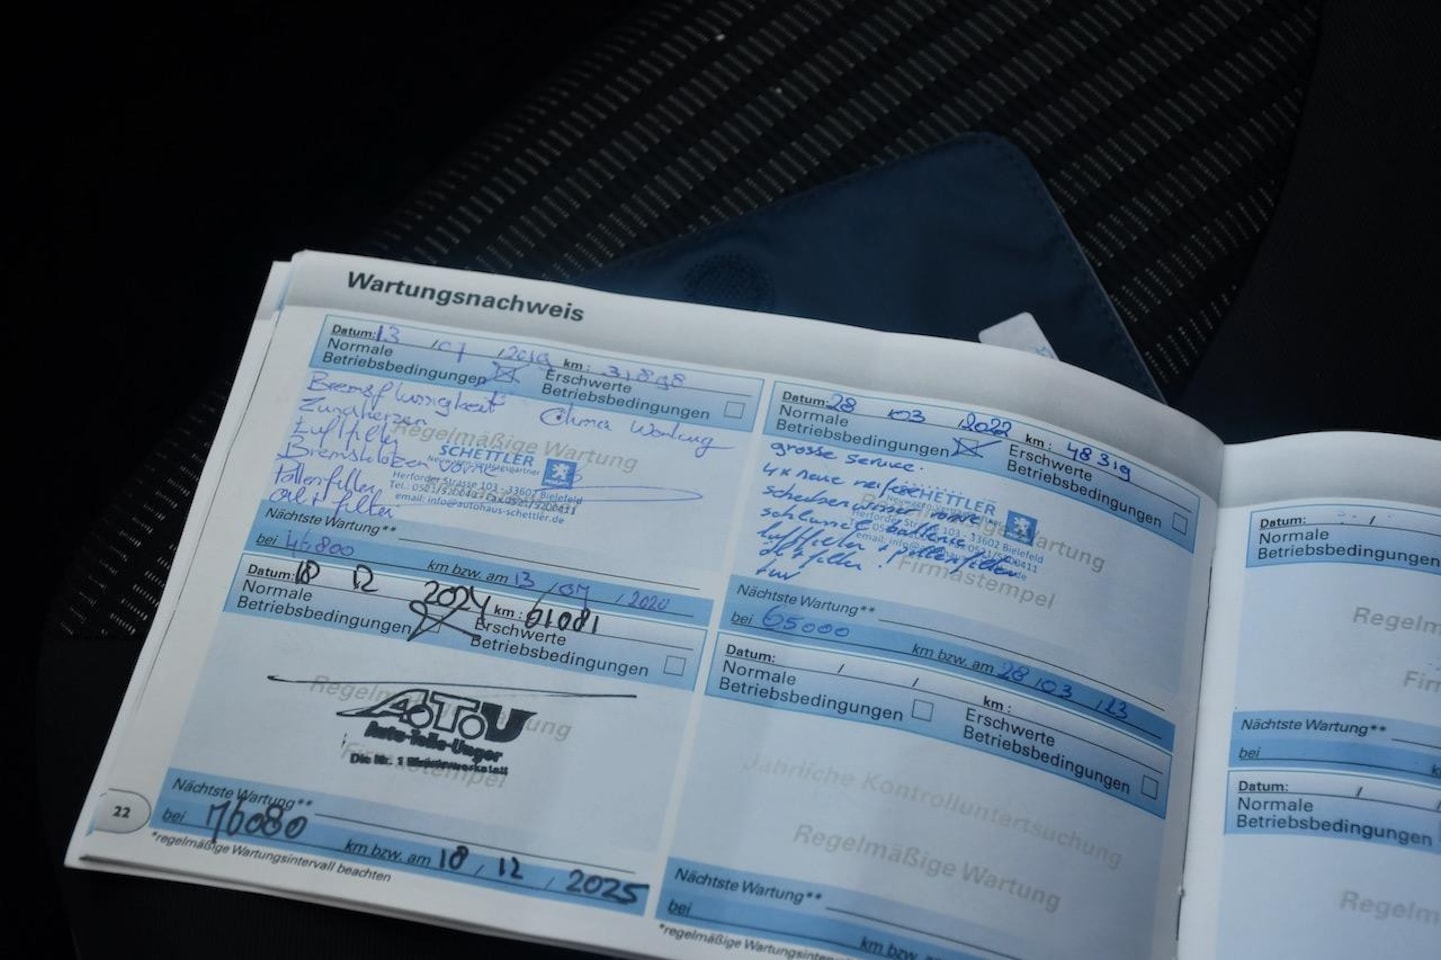 Wartungsnachweis
Datum: 13 / 07 / 2019 km: 31898
Normale
Betriebsbedingungen
Erschwerte
Betriebsbedingungen
Bremsflüssigkeit
Zündkerzen
Clima Wartung
Luftfilter
Regelmäßige Wartung
Bremsklötzen vorne
SCHETTLER
Herforder Strasse 103 - 33602 Bielefeld
Pollenfilter
email: info@autohaus-schettler.de
Nächste Wartung**
bei 46800 km bzw. am 13 / 07 / 2020
Datum: 28 / 03 / 2022 km: 48319
Normale
Betriebsbedingungen
Erschwerte
Betriebsbedingungen
grosse service.
4x neue reifen
SCHETTLER
Herforder Strasse 103 - 33602 Bielefeld
luftfilter + pollenfilter
ölfilter
Firmastempel
Nächste Wartung**
bei 65000 km bzw. am 28 / 03 / 23
Datum: 18 12 2024 km: 61081
Normale
Betriebsbedingungen
Erschwerte
Betriebsbedingungen
A.T.U
Auto-Teile-Unger
Die Nr. 1 Meisterwerkstatt
Firmastempel
Nächste Wartung**
bei 76080 km bzw. am 18 / 12 / 2025
*regelmäßige Wartungsintervall beachten
22
Datum: / / km:
Normale
Betriebsbedingungen
Erschwerte
Betriebsbedingungen
Jährliche Kontrolluntersuchung
Regelmäßige Wartung
Nächste Wartung**
bei km bzw.
*regelmäßige Wartungsinterva
Datum: /
Normale
Betriebsbedingungen
Regelm
Firm
Nächste Wartung**
bei
Datum: /
Normale
Betriebsbedingungen
Regelm